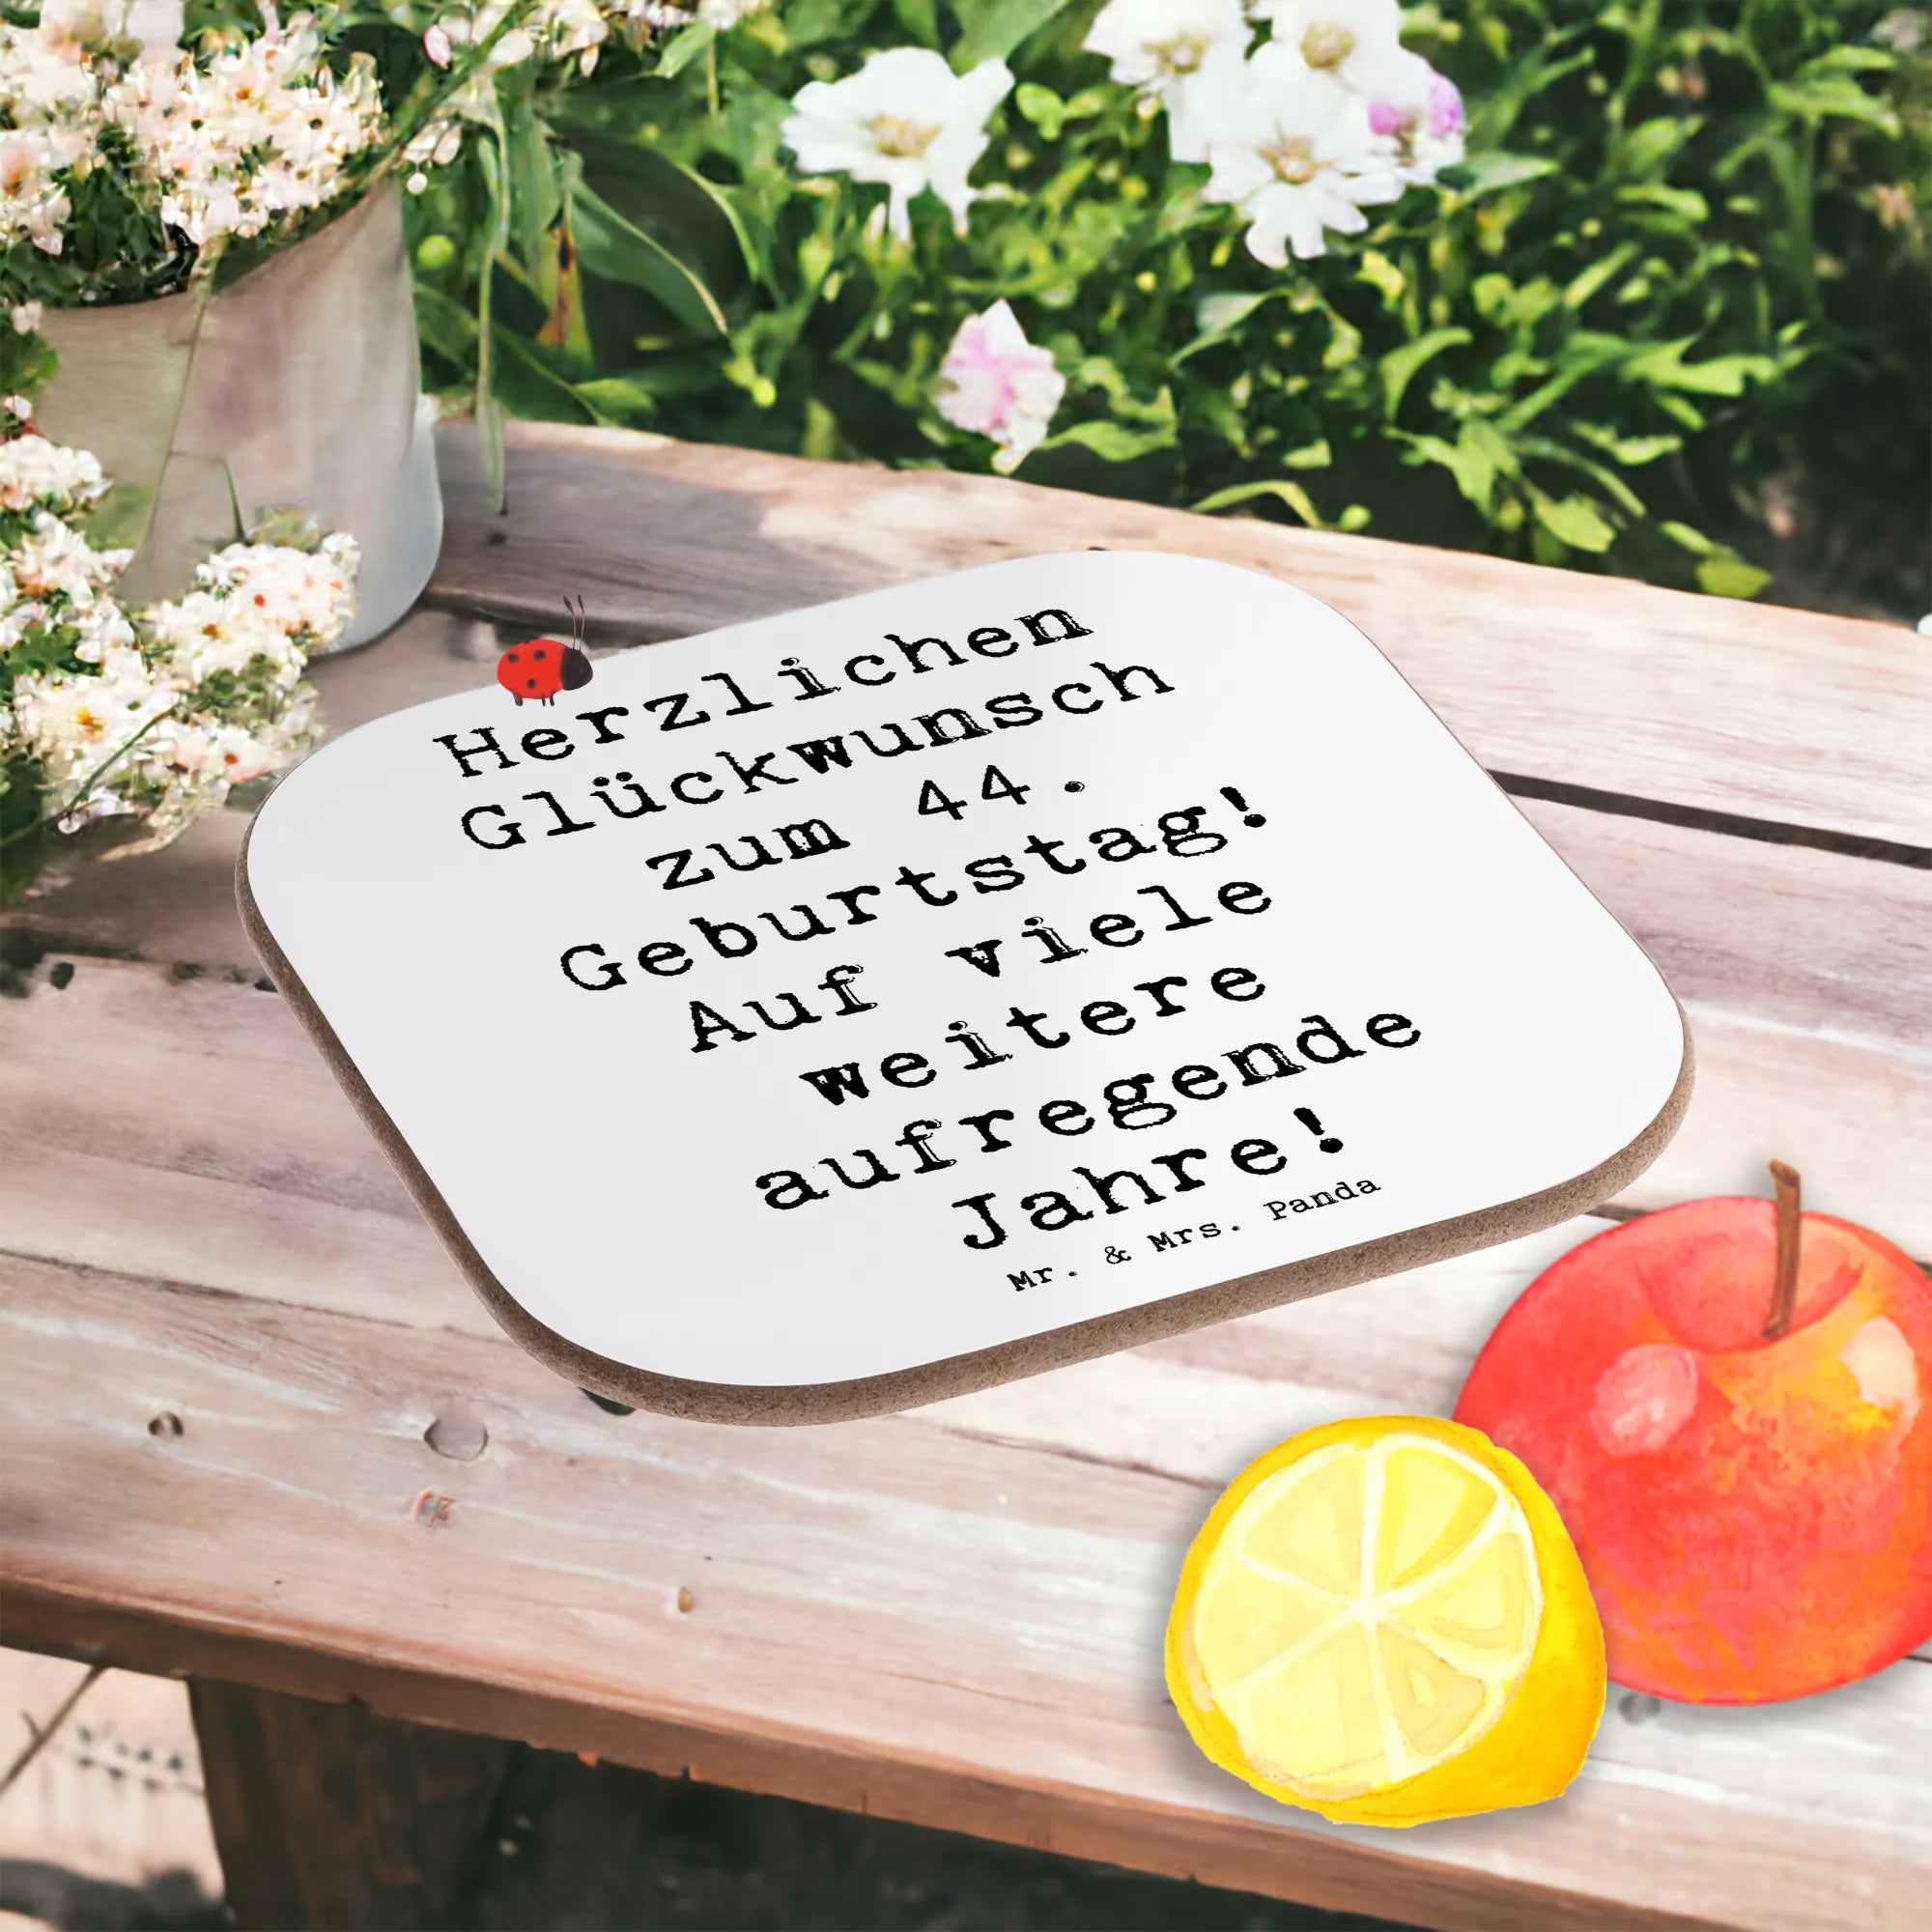 Herzlichen
Glückwunsch
zum 44.
Geburtstag!
Auf viele
weitere
aufregende
Jahre!
Mr. & Mrs. Panda